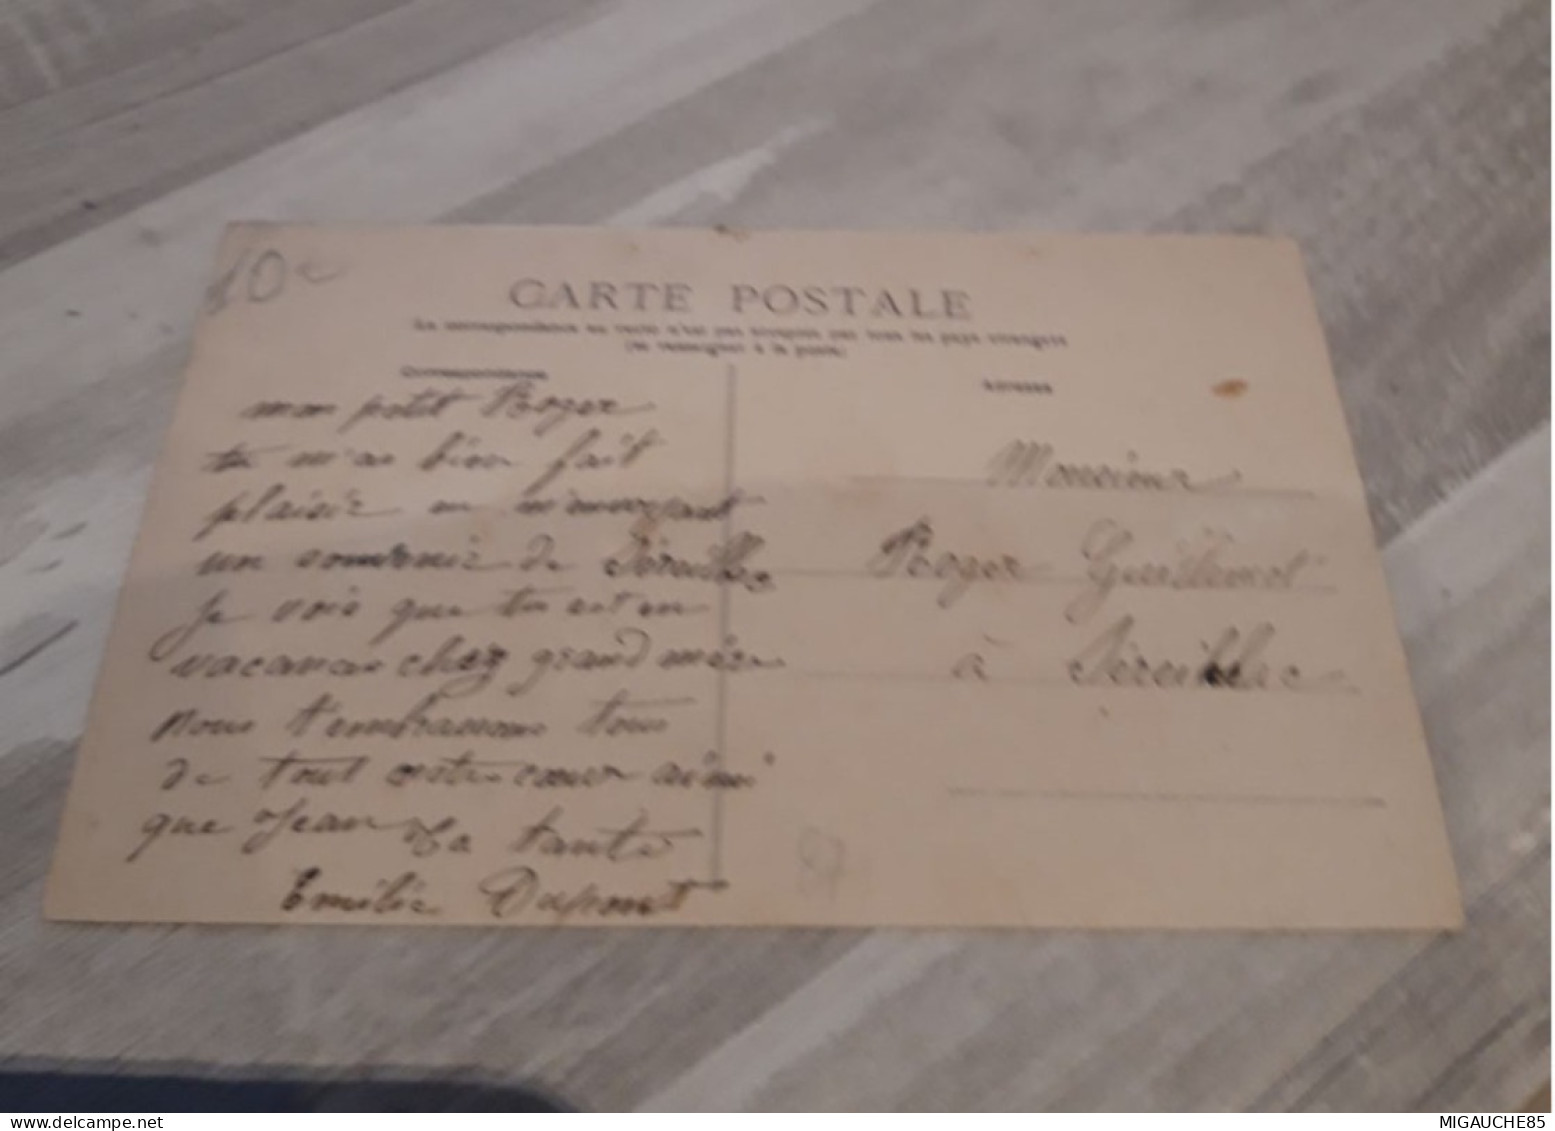 10c
CARTE POSTALE
La correspondance au verso n'est pas acceptée par tous les pays étrangers
(se renseigner à la poste)
Correspondance
Adresse
mon petit Roger
tu m'as bien fait
plaisir en m'envoyant
un souvenir de
Je vois que tu est en
vacances chez grand mère
nous t'embrassons tous
de tout notre cœur ainsi
que Jean Ta tante
Emilie Dupont
Monsieur
Roger Guillemot
à
www.delcampe.net
MIGAUCHE85